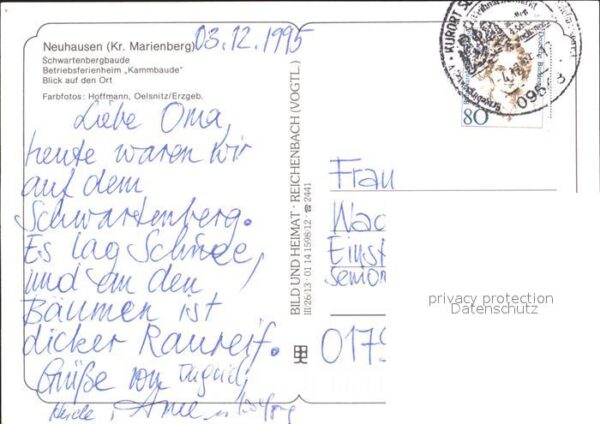 Neuhausen (Kr. Marienberg) 03.12.1995
Schwartenbergbaude
Betriebsferienheim „Kammbaude"
Blick auf den Ort
Farbfotos: Hoffmann, Oelsnitz/Erzgeb.
Liebe Oma,
heute waren wir
auf dem
Schwartenberg.
Es lag Schnee,
und an den
Bäumen ist
dicker Raureif.
Grüße von Ingrid,
Heide, Anne
BILD UND HEIMAT · REICHENBACH (VOGTL.)
III 26/13 · 01 14 1596:12 ☎ 2441
KURORT
80
Frau
Wac
Einst
semon
0179
privacy protection
Datenschutz